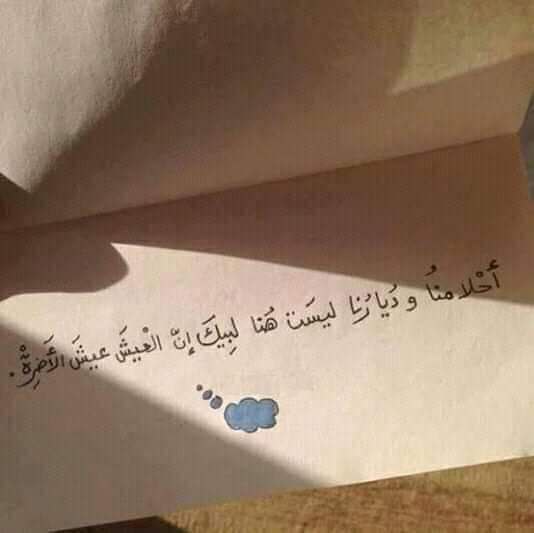 أَحْلامنُا و دَيارُنا ليسَت هُنا لبِيكَ إنّ الْعيشَ عيشَ الأَخرِةْ .